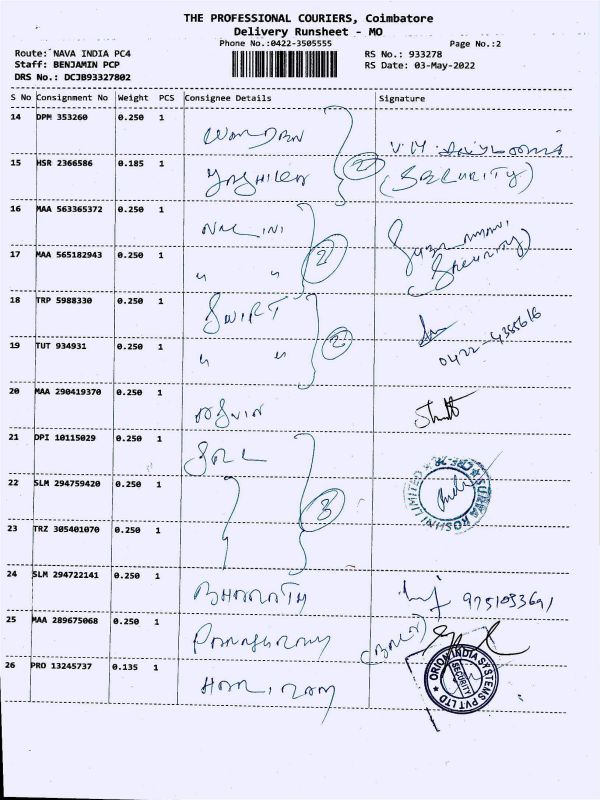 THE PROFESSIONAL COURIERS, Coimbatore
Delivery Runsheet - MO
Phone No.:0422-3505555 Page No.:2
Route: NAVA INDIA PC4 RS No.: 933278
Staff: BENJAMIN PCP RS Date: 03-May-2022
DRS No.: DCJB93327802
S No Consignment No Weight PCS Consignee Details Signature
14 DPM 353260 0.250 1
15 HSR 2366586 0.185 1 2 (SECURITY)
16 MAA 563365372 0.250 1 NALINI
17 MAA 565182943 0.250 1 " " 2 (Security)
18 TRP 5988330 0.250 1 SWIFT
19 TUT 934931 0.250 1 " " 2 0422-4385616
20 MAA 290419370 0.250 1
21 DPI 10115029 0.250 1
22 SLM 294759420 0.250 1 3 SURYA ROSHNI LIMITED
23 TRZ 305401070 0.250 1
24 SLM 294722141 0.250 1 BHARATH 9751033691
25 MAA 289675068 0.250 1
26 PRO 13245737 0.135 1 HARIRAM ORION INDIA SYSTEMS PVT LTD SECURITY